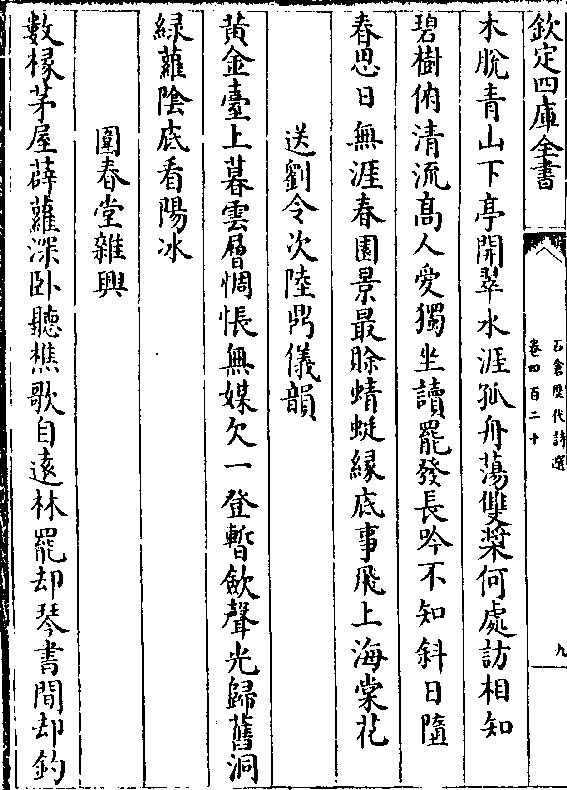 欽定四庫全書
石倉歷代詩選
卷四百二十
九
木脫青山下亭開翠水涯孤舟蕩雙槳何處訪相知
碧樹俯清流髙人愛獨坐讀罷發長吟不知斜日墮
春思日無涯春園景最賒蜻蜓緣底事飛上海棠花
送劉令次陸鼎儀韻
黃金臺上暮雲層惆悵無媒欠一登暫斂聲光歸舊洞
緑蘿陰底看陽冰
圜春堂雜興
數椽茅屋薜蘿深卧聽樵歌自逺林罷却琴書閒却釣